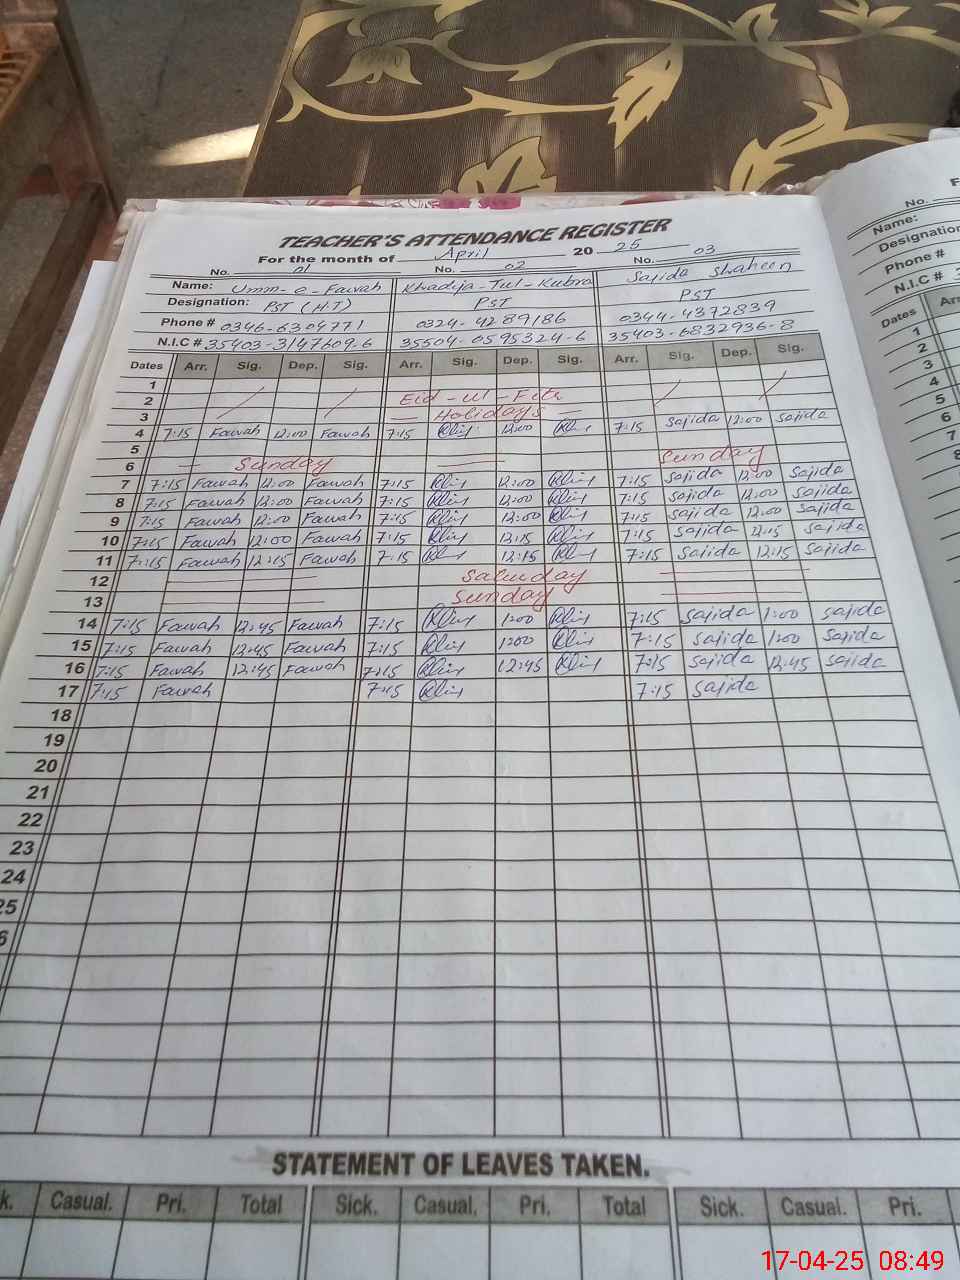 TEACHER'S ATTENDANCE REGISTER
For the month of April 2025
No. 01 No. 02 No. 03
Name: Umm-e-Farwah Khadija-Tul-Kubra Sajida Shaheen
Designation: PST (H.T) PST PST
Phone # 0346-6304771 0324-4289186 0344-4372839
N.I.C # 35403-3147609-6 35504-0595324-6 35403-6832936-8
Dates Arr. Sig. Dep. Sig. Arr. Sig. Dep. Sig. Arr. Sig. Dep. Sig.
1
2 Eid-ul-Fitr
3 Holidays
4 7:15 Farwah 12:00 Farwah 7:15 12:00 7:15 Sajida 12:00 Sajida
5
6 Sunday Sunday
7 7:15 Farwah 12:00 Farwah 7:15 12:00 7:15 Sajida 12:00 Sajida
8 7:15 Farwah 12:00 Farwah 7:15 12:00 7:15 Sajida 12:00 Sajida
9 7:15 Farwah 12:00 Farwah 7:15 12:00 7:15 Sajida 12:00 Sajida
10 7:15 Farwah 12:00 Farwah 7:15 12:15 7:15 Sajida 12:15 Sajida
11 7:15 Farwah 12:15 Farwah 7:15 12:15 7:15 Sajida 12:15 Sajida
12 Saturday
13 Sunday
14 7:15 Farwah 12:45 Farwah 7:15 1:00 7:15 Sajida 1:00 Sajida
15 7:15 Farwah 12:45 Farwah 7:15 1:00 7:15 Sajida 1:00 Sajida
16 7:15 Farwah 12:45 Farwah 7:15 12:45 7:15 Sajida 12:45 Sajida
17 7:15 Farwah 7:15 7:15 Sajida
18
19
20
21
22
23
24
25
6
STATEMENT OF LEAVES TAKEN.
k. Casual. Pri. Total Sick. Casual. Pri. Total Sick. Casual. Pri.
No.
Name:
Designation
Phone #
N.I.C #
Dates Arr
1
2
3
4
5
6
7
8
17-04-25 08:49